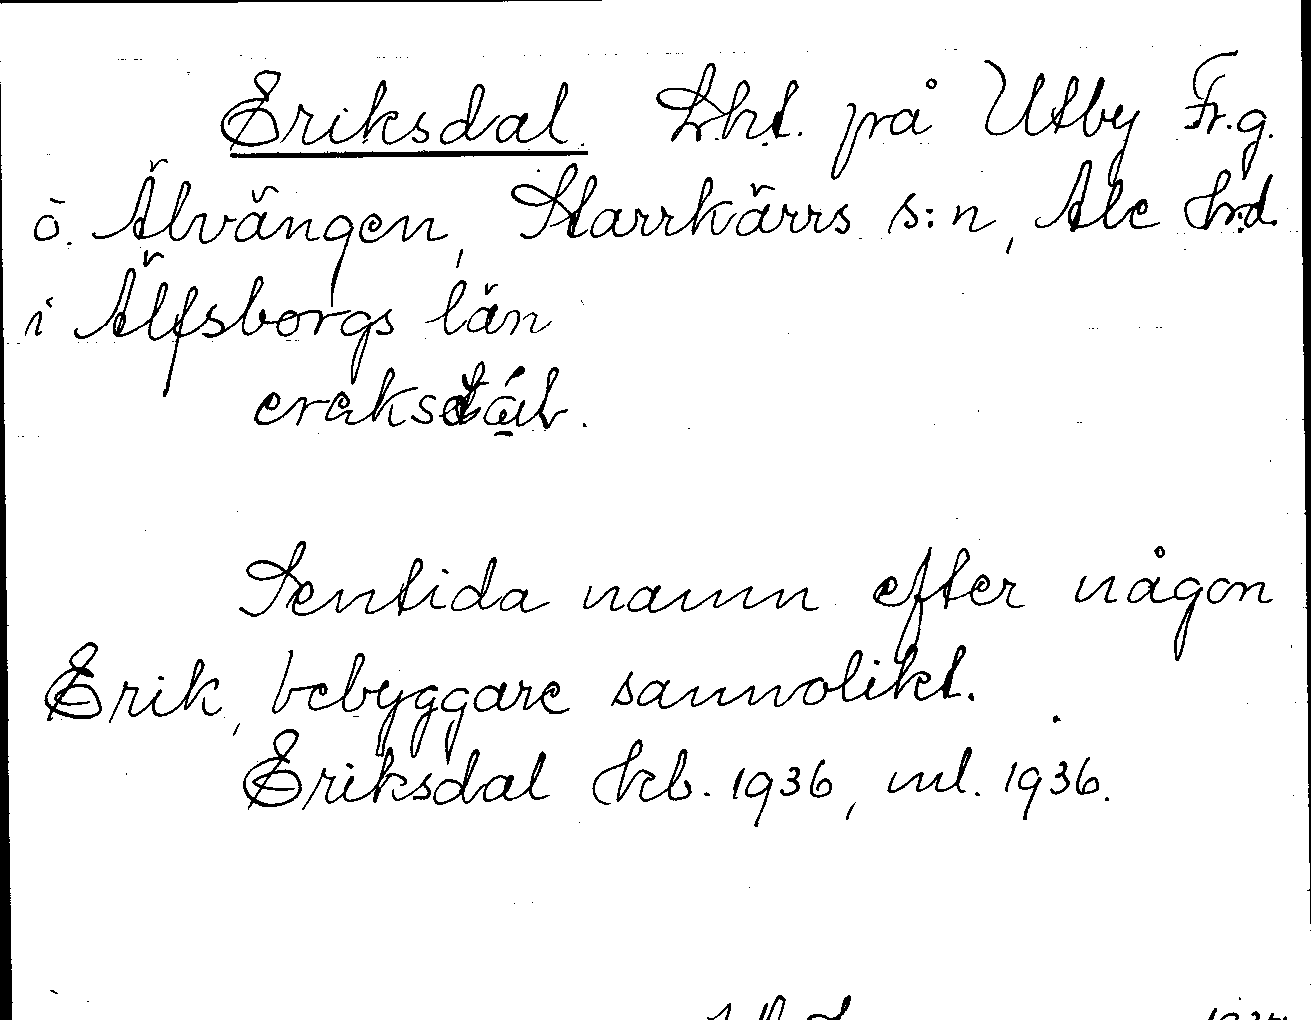 Eriksdal. Lht. på Utby Fr.g.
ö. Älvängen, Starrkärrs s:n, Ale hd.
i Älfsborgs län
Sentida namn efter någon
Erik, bebyggare sannolikt.
Eriksdal kb. 1936, ml. 1936.